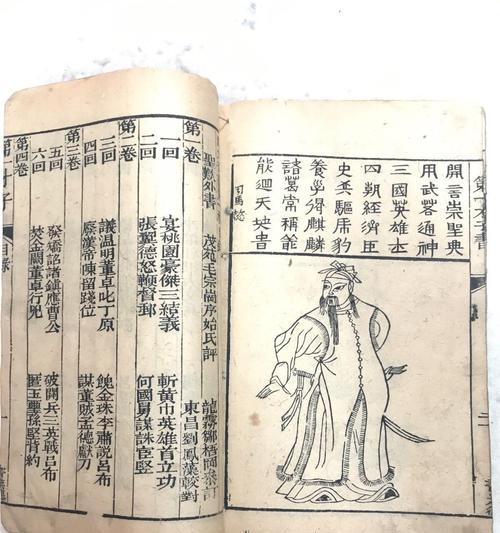 第一才子書
開言崇聖典
用武若通神
三國英雄士
四朝經濟臣
兵驅豹
養得麒麟
諸葛常
能迴天
司馬懿
二
聖歎外書 茂苑毛宗崗序始氏評
鄒梧岡
東昌劉鳳藻較對
第一卷
一回 宴桃園豪傑三結義 斬黃巾英雄首立功
二回 張翼德怒鞭督郵 何國舅謀誅宦豎
第二卷
三回 議溫明董卓叱丁原 餽金珠李肅說呂布
四回 廢漢帝陳留踐位 謀董賊孟德獻刀
第三卷
五回 發矯詔諸鎮應曹公 破關兵三英戰呂布
六回 焚金闕董卓行兇 匿玉璽孫堅背約
第四卷
第一才子 目錄 一